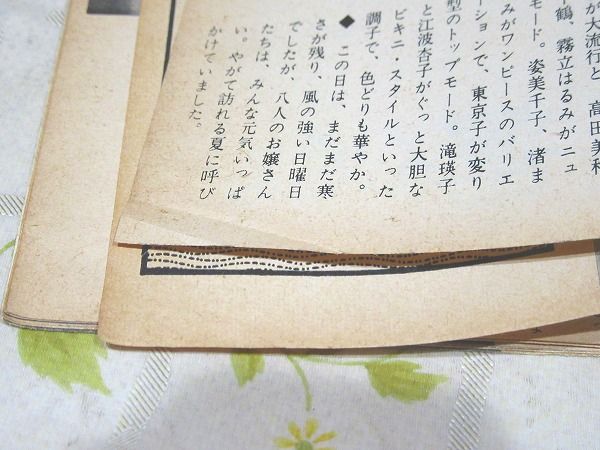 が大流行と、高田美和
鶴、霧立はるみがニュ
モード。姿美千子、渚ま
みがワンピースのバリエ
ーションで、東京子が変り
型のトップモード。滝瑛子
と江波杏子がぐっと大胆な
ビキニ・スタイルといった
調子で、色どりも華やか。
◆ この日は、まだまだ寒
さが残り、風の強い日曜日
でしたが、八人のお嬢さん
たちは、みんな元気いっぱ
い。やがて訪れる夏に呼び
かけていました。